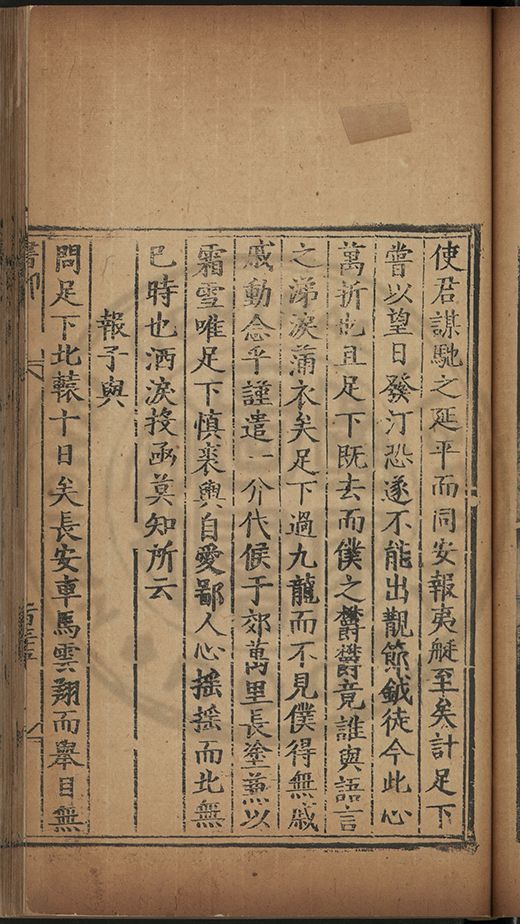 使君謀馳之延平而同安報夷艇至矣計足下
嘗以望日發汀恐遂不能出覯節鉞徒令此心
萬折也且足下既去而僕之欝欝竟誰與語言
之涕淚蒲衣矣足下過九龍而不見僕得無戚
戚動念乎謹遣一介代候于郊萬里長塗兼以
霜雪唯足下慎裘輿自愛鄙人心搖搖而北無
已時也洒淚投函莫知所云
報子與
問足下北轅十日矣長安車馬雲翔而舉目無